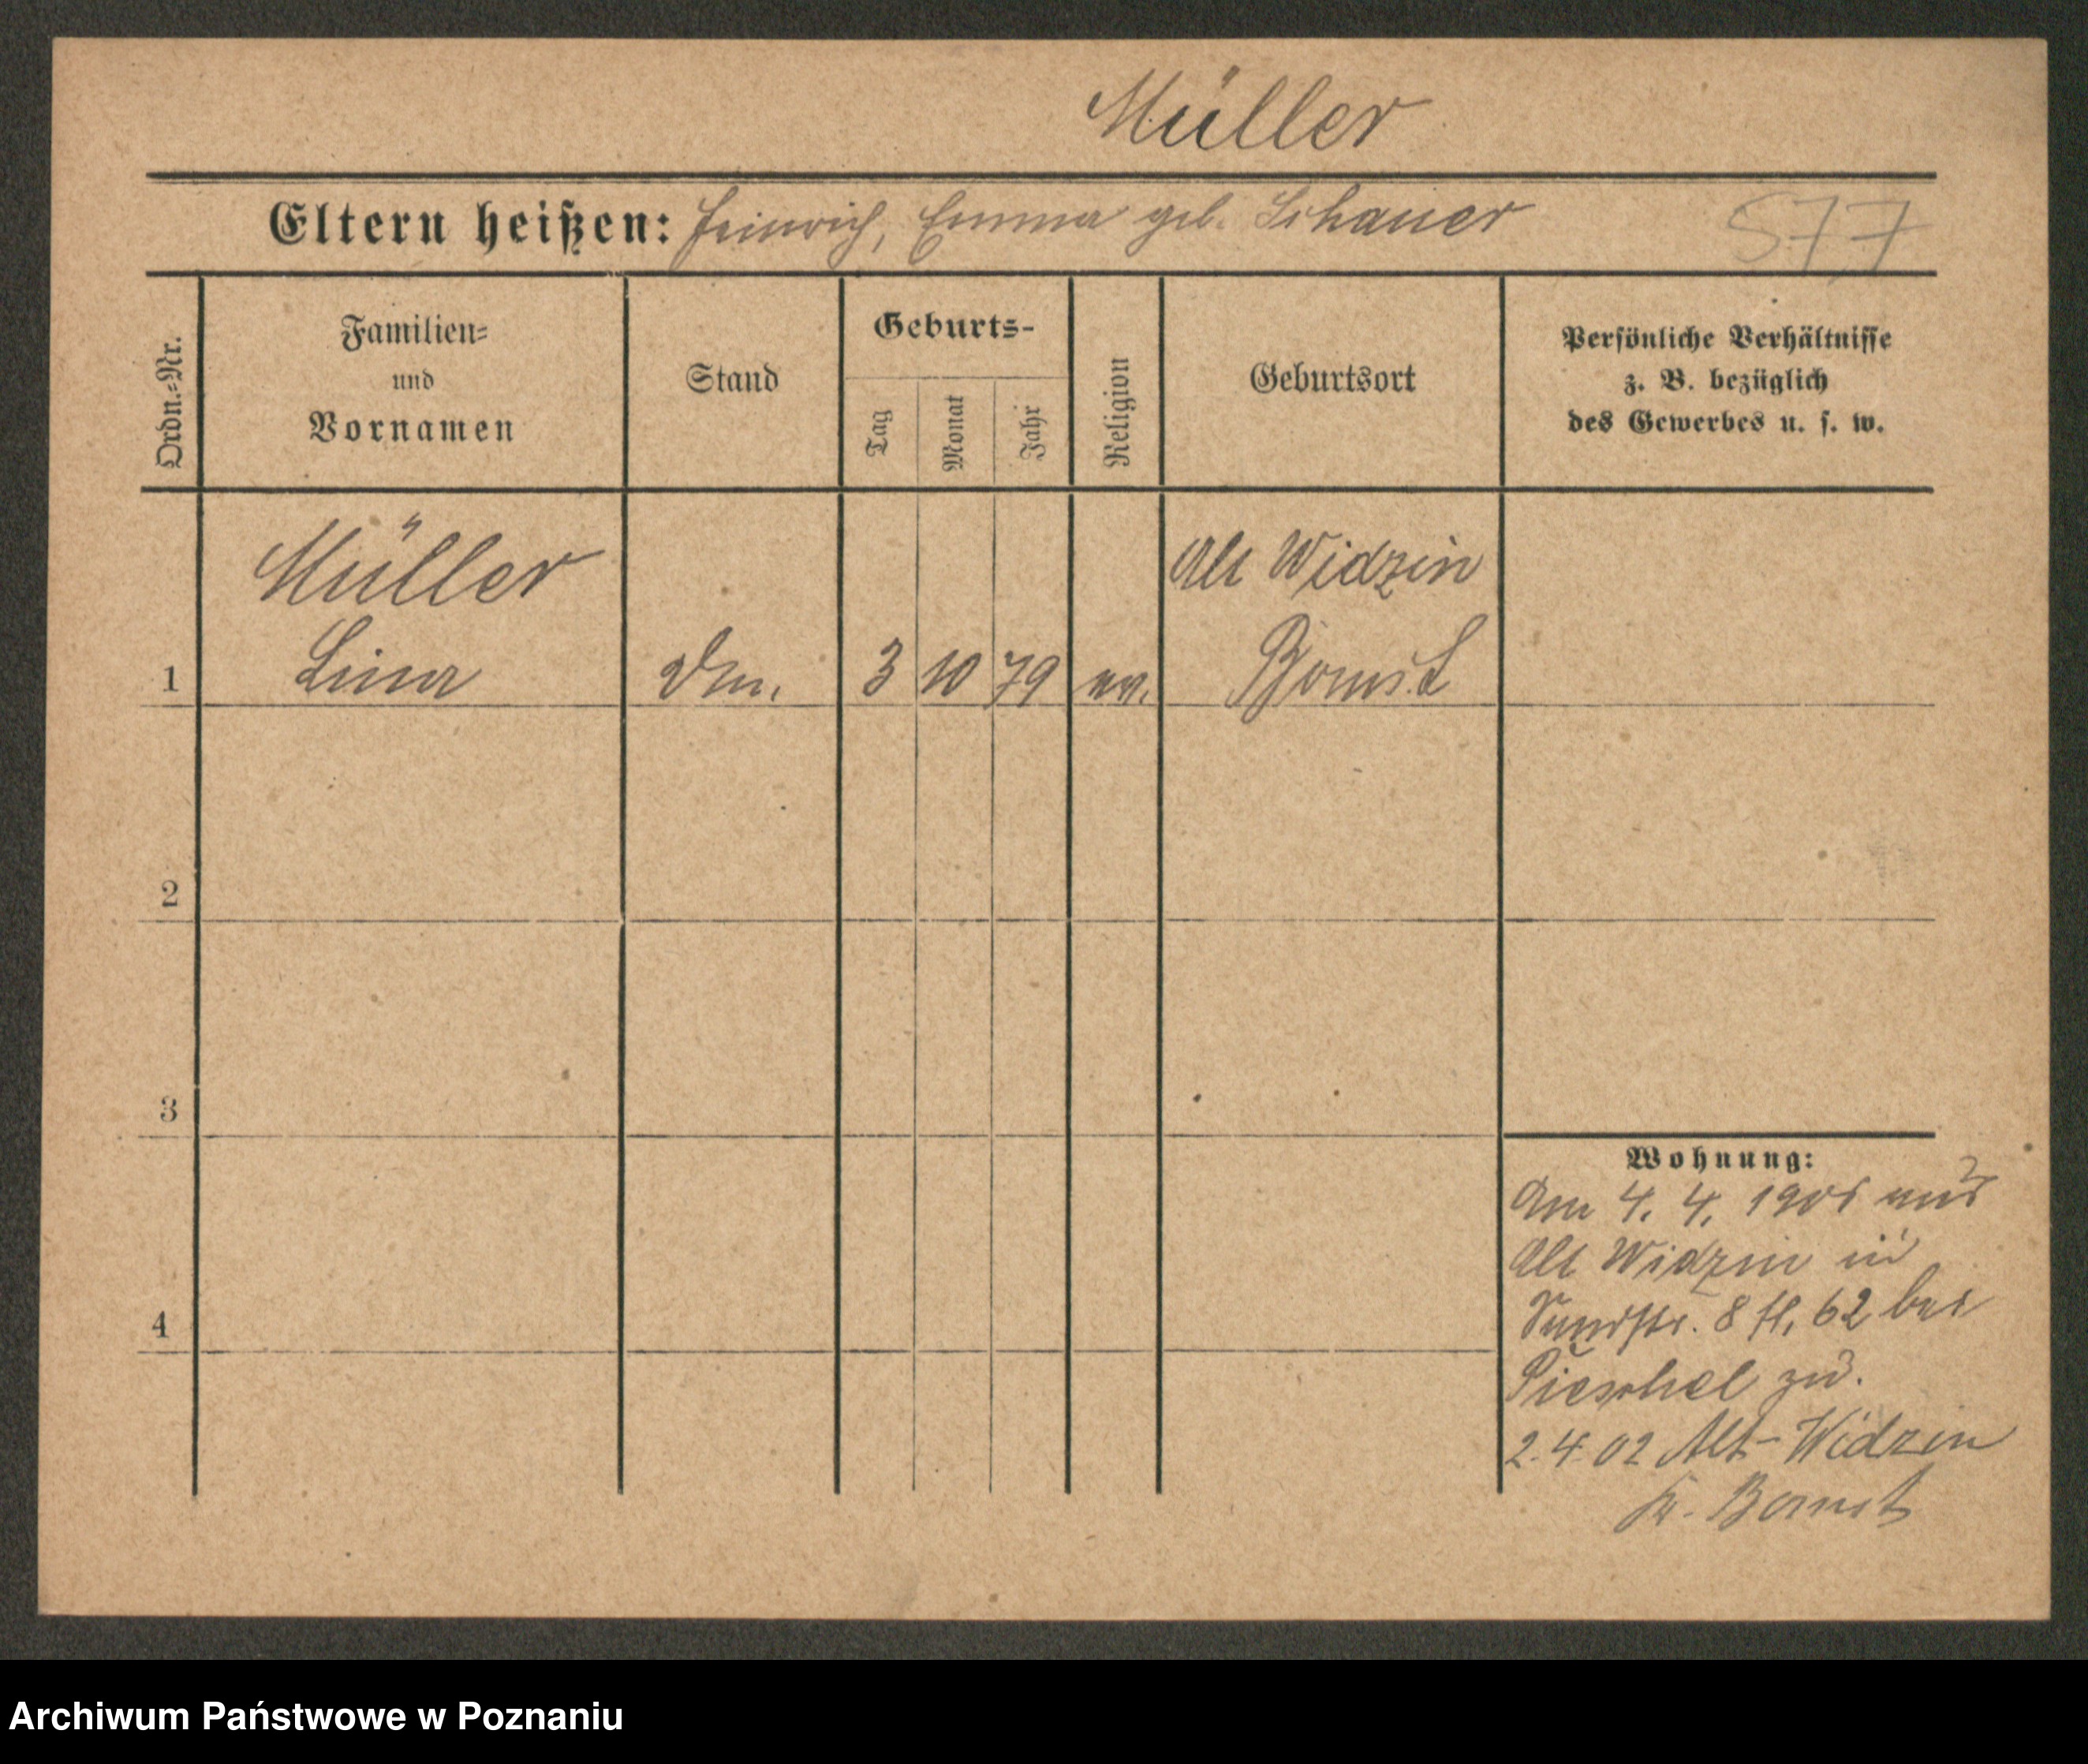 Müller
Eltern heißen: Heinrich, Emma geb. Schauer 577
Ordn.-Nr.
Familien- und Vornamen
Stand
Geburts-
Tag
Monat
Jahr
Religion
Geburtsort
Persönliche Verhältnisse
z. B. bezüglich
des Gewerbes u. s. w.
Müller Alt Widzin
1 Lina 3 10 79 ev. Bomst
2
3
4
Wohnung:
Am 4. 4. 1901 aus
Alt Widzin in
8 62 bei
zu.
2.4.02 Alt-Widzin
Kr. Bomst
Archiwum Państwowe w Poznaniu